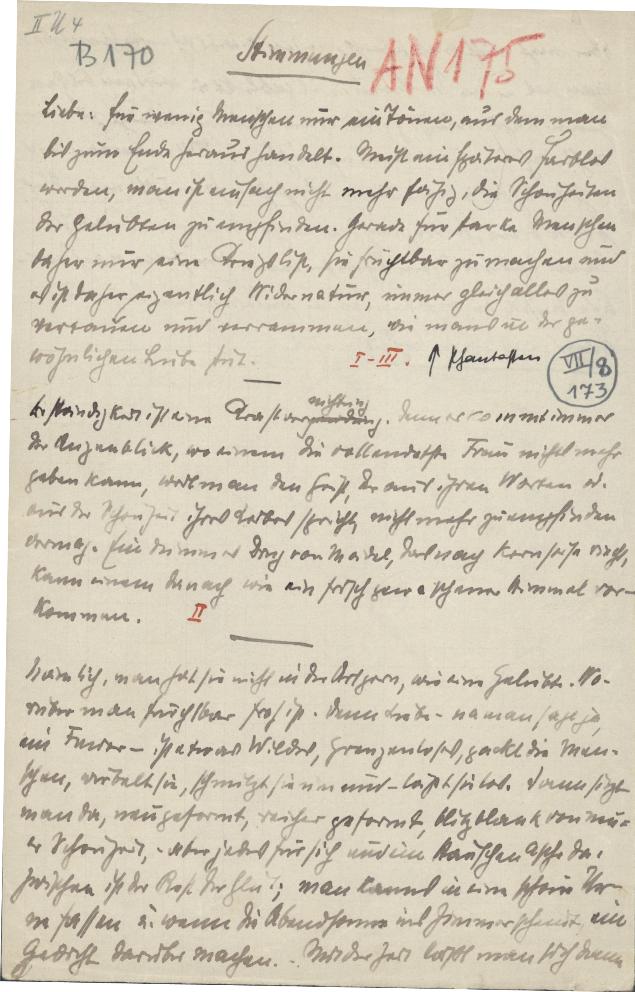 II U 4
B 170
Stimmungen
AN 175
Liebe: für wenig Menschen nur ein Tönen, aus dem man
bis zum Ende heraus handelt. Meist ein späteres Farblos
werden, man ist einfach nicht mehr fähig, die Schönheiten
der Geliebten zu empfinden. Gerade für starke Menschen
daher nur eine List, sie fruchtbar zu machen und
es ist daher eigentlich Widernatur, immer gleich alles zu
und verrammen, wie man es in der ge-
wöhnlichen Liebe tut.
I-III. ↑ Phantasten
VII/8
173
Beständigkeit ist eine Kraft. denn es kommt immer
der Augenblick, wo einem die vollendetste Frau nichts mehr
geben kann, weil man den Geist, der aus ihren Worten od.
aus der Schönheit ihres Leibes spricht, nicht mehr zu empfinden
vermag. Ein dummes Ding von Mädel, das nach Kernseife riecht,
kann einem danach wie ein frisch gewaschener Himmel vor-
kommen. II
Nämlich, man hat sie nicht in den Armen, wie eine Geliebte. Wo-
rüber man furchtbar froh ist. Denn Liebe - na man sage ja,
ein Furor - ist etwas Wildes, Grenzenloses, packt die Men-
schen, wirbelt sie, schmilzt sie um und - läßt sie los. Dann sitzt
man da, neugeformt, reicher geformt, blitzblank von neu-
er Schönheit, - aber jedes für sich und ein Häufchen Asche da-
zwischen ist der Rest der Glut; man kann es in eine schöne Ur-
ne fassen u. wenn die Abendsonne ins Zimmer scheint, ein
Gedicht darüber machen. - Mit der Zeit läßt man sich dann